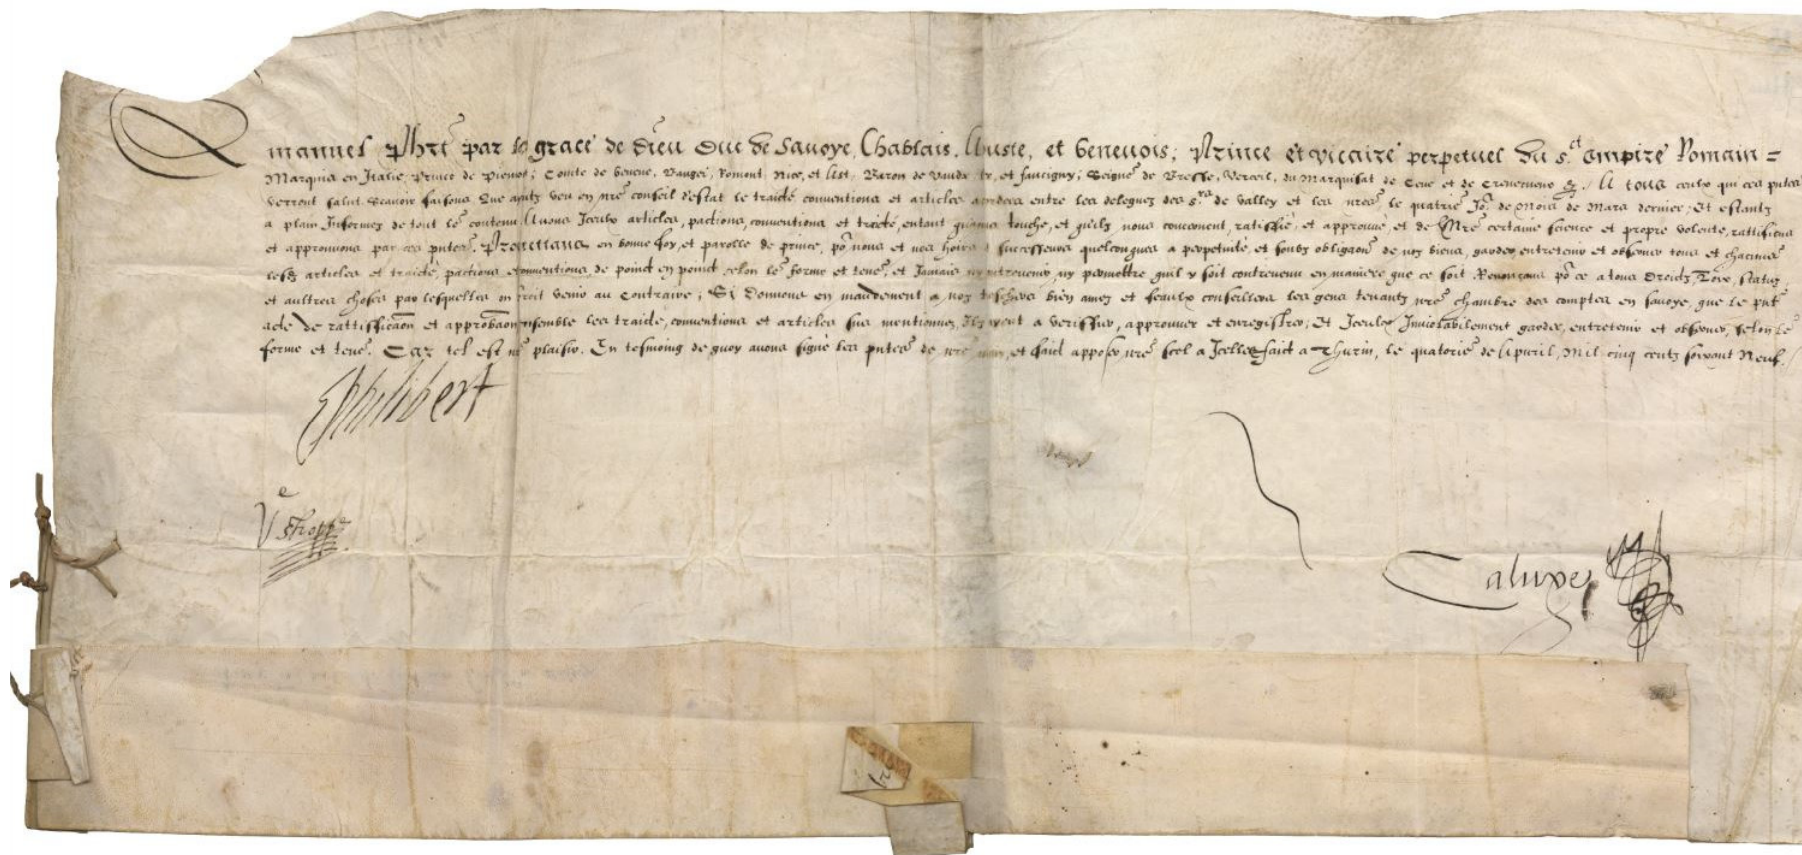 Emanuel Phrt par la grace de Dieu Duc de Savoye, Chablais, Auste, et Genevois; Prince et vicaire perpetuel du st Empire Romain =
Marquis en Italie, Prince de Piemot; Comte de Geneve, Baugé, Romont, Nice, et Ast, Baron de Vaudz, et Faucigny; Seignr de Bresse, Verceil, du Marquisat de Ceve et de &. A tous ceulx qui ces pntes
verront salut. Scavoir faisons Que ayatz veu en nre conseil d'estat le traicté conventions et articles accordees entre les deleguez des srs de Valley et les nres, le quatrie Jor de Mois de Mars dernier; Et estantz
a plain Informez de tout le contenu Avons Iceulx articles, pactions, conventions et traicté, entant qu'a nous touche, et qu'ilz nous concernent, ratiffié, et approuvé, et de Nre certaine science et propre volonte, rattifions
et approuvons par ces pntes. Promettans en bonne foy, et parolle de prince, por nous et noz hoirs et successeurs quelconques a perpetuité, et soubz obligaon de noz biens, garder, entretenir et observer tous et chacuns
lesdz articles et traicté, pactions, conventions, de poinct en poinct selon le forme et tener, et Jamais ny contrevenir, ny permettre quil y soit contrevenu en maniere que ce soit. Renonçans por ce a tous Droictz, Loix, status,
et aultres choses par lesquelles on pourroit venir au Contraire; Si Donnons en mandement a noz treschers bien amez et feaulx conseilliers les gens tenantz nre chambre des comptes en Savoye, que le pnt
acte de rattifficaon et approbaon ensemble les traicté, conventions et articles sus mentionnez, Ilz ayent a veriffier, approuver et enregistrer; Et Iceulx Inviolablement garder, entretenir et observer, selon le
forme et tener. Car tel est nre plaisir. En tesmoing de quoy avons signé les pntes de nre main, et faict apposer nre scel a Icelles. faict a Thurin, le quatorze de Apvril, Mil cinq centz soixant Neuf.
EPhilibert
Ve
Caluxe